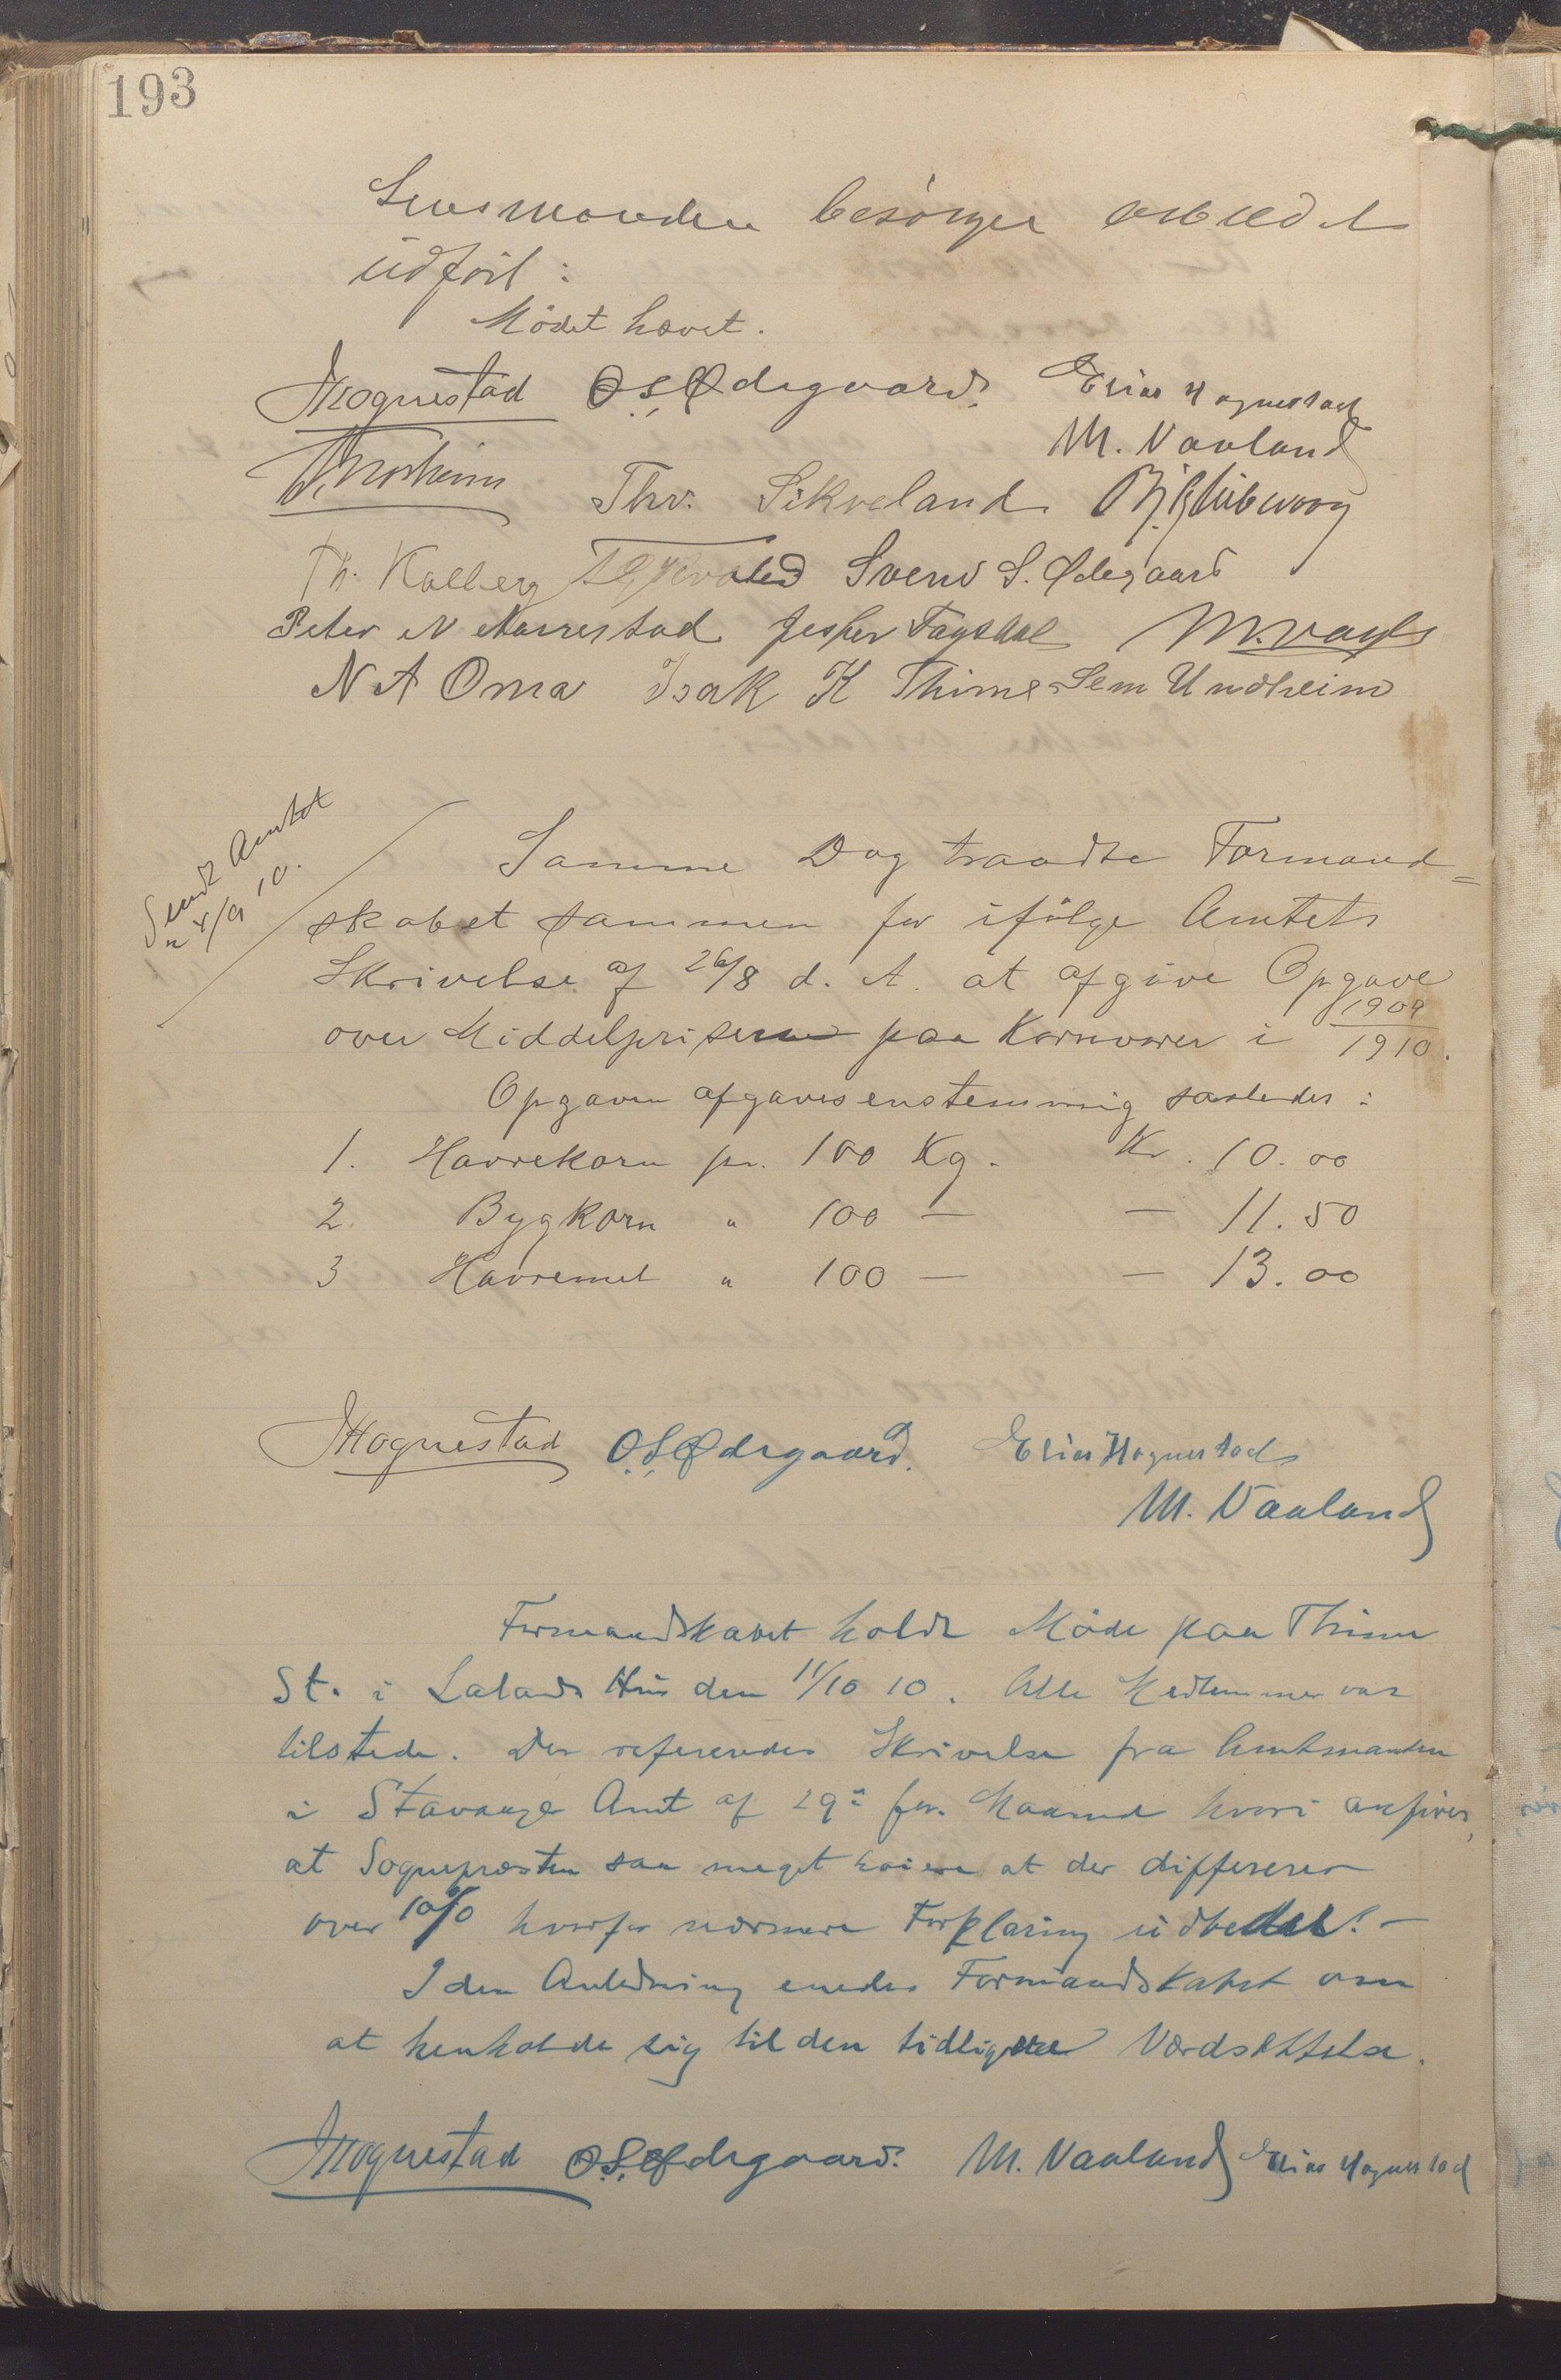 193
Lensmanden besörger arbeidet
üdfört:
Mödet hævet.
Hognestad O. S. Ødegaard. Elias Hognestad
M. Vaaland
Norheim Thv. Sikveland
Th. Kalberg Svend S. Ødegaard
Peter N Narrestad Jesper Fagsdal M. Vagle
N A Oma Isak K Thime Sem Undheim
Sendt Amtet
4/9 10.
Samme Dag traadte Formand=
skabet sammen for ifölge Amtets
Skrivelse af 26/8 d. A. at afgive Opgave
over Middelpriserne paa Kornvarer i 1909/1910.
Opgaven afgaves enstemmig saaledes:
1. Havrekorn pr. 100 Kg. Kr. 10.00
2. Bygkorn " 100 — — 11.50
3 Havremel " 100 — — 13.00
Hognestad O. S. Ødegaard. Elias Hognestad
M. Vaaland
Formandskabet holdt Möde paa Thime
St. i Lalands Hus den 11/10 10. Alle Medlemmer var
tilstede. Der refereredes Skrivelse fra Amtmanden
i Stavanger Amt af 29 for. Maaned hvori anföres,
at Sognepræsten saa meget höiere at der differerer
over 10% hvorfor nærmere Forklaring üdbedes. —
I den Anledning enedes Formandskabet om
at henholde sig til den tidligere Værdsættelse.
Hognestad O. S. Ødegaard. M. Vaaland Elias Hognestad